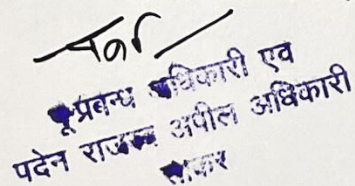 भूप्रबन्ध अधिकारी एव
पदेन राजस्व अपील अधिकारी
सीकर